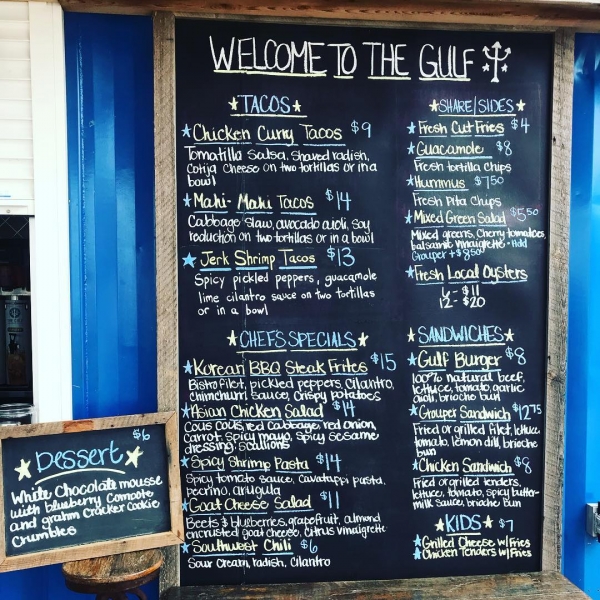 WELCOME TO THE GULF
TACOS
Chicken Curry Tacos $9
Tomatilla Salsa, Shaved radish,
Cotija Cheese on two tortillas or in a
bowl
Mahi-Mahi Tacos $14
Cabbage Slaw, avocado aioli, soy
reduction on two tortillas or in a bowl
Jerk Shrimp Tacos $13
Spicy pickled peppers, guacamole
lime cilantro sauce on two tortillas
or in a bowl
CHEFS SPECIALS
Korean BBQ Steak Frites $15
Bistro filet, pickled peppers, cilantro,
chimichurri sauce, crispy potatoes
Asian Chicken Salad $14
Cous cous, red cabbage, red onion,
carrot, spicy mayo, spicy sesame
dressing, scallions
Spicy Shrimp Pasta $14
Spicy tomato sauce, cavatappi pasta,
pecrino, arugula
Goat Cheese Salad $11
Beets & blueberries, grapefruit, almond
encrusted goat cheese, citrus vinaigrette
Southwest Chili $6
Sour Cream, radish, cilantro
SHARE/SIDES
Fresh Cut Fries $4
Guacamole $8
Fresh tortilla Chips
Hummus $7.50
Fresh Pita Chips
Mixed Green Salad $5.50
Mixed greens, Cherry tomatoes,
balsamic vinaigrette - Add
Grouper + $8.50
Fresh Local Oysters
½ - $11
12 - $20
SANDWICHES
Gulf Burger $8
100% natural beef,
lettuce, tomato, garlic
aioli, brioche bun
Grouper Sandwich $12.75
Fried or grilled filet, lettuce,
tomato, lemon dill, brioche
bun
Chicken Sandwich $8
Fried or grilled tenders,
lettuce, tomato, spicy butter-
milk sauce, brioche bun
KIDS $7
Grilled Cheese w/Fries
Chicken Tenders w/Fries
$6
Dessert
White Chocolate mousse
with blueberry Compote
and grahm Cracker Cookie
Crumbles